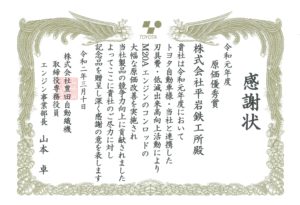 TOYOTA
感謝状
令和元年度
原価優秀賞
株式会社平岩鉄工所殿
貴社は令和元年度において
トヨタ自動車様・当社と連携した
刃具費・低減出来高向上活動により
M20Aエンジンのコンロッドの
大幅な原価改善を実施され
当社製品の競争力向上に貢献されました
よってここに貴社のご尽力に対し
記念品を贈呈し深く感謝の意を表します
令和二年三月十日
株式会社豊田自動織機
取締役専務役員
エンジン事業部長
山本 卓